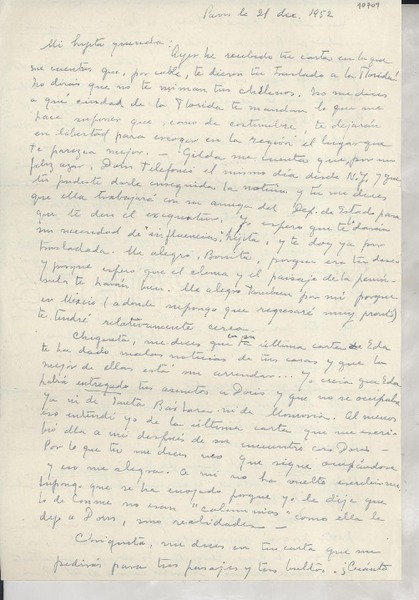 10701
Paris le 21 dic. 1952
Mi hijita querida:
Ayer he recibido tu carta en la que
me cuentas que, por cable, te dieron tu traslado a la Florida!
No dirás que no te miman tus chilenos. No me dices
a qué ciudad de la Florida te mandan lo que me
hace suponer que, como de costumbre, te dejarán
en libertad para escoger en la región el lugar que
te parezca mejor. — Gilda me cuenta que, por un
feliz azar, Doris telefoneó el mismo día desde N.Y. y que
tú pudiste darle enseguida la noticia y tú me dices
que ella trabajará con su amiga del Dep. de Estado para
que te den el exequatur. Yo espero que te darán
sin necesidad de influencias, hijita, y te doy ya por
trasladada. Me alegro, Bonita, porque era tu deseo
y porque espero que el clima y el paisaje de la penín-
sula te harán bien. Me alegro también por mí porque
en México (a donde supongo que regresaré muy pronto)
te tendré relativamente cerca.
Chiquita, me dices que en su última carta Eda
te ha dado malas noticias de tus casas y que la
mejor de ellas está sin arrendar... Yo creía que Eda
había entregado tus asuntos a Doris y que no se ocupaba
ya ni de Santa Bárbara ni de Monrovia. Al menos
eso entendí yo de la última carta que me escri-
bió ella a mí después de su encuentro con Doris —
Por lo que tú me dices veo que sigue ocupándose
y eso me alegra. A mí no ha vuelto a escribirme
Supongo que se ha enojado porque yo le dije que
lo de Connie no eran "calumnias" como ella le
dijo a Doris, sino realidades —
Chiquita, me dices en tu carta que me
pedirás para tus pasajes y tus bultos. ¿Cuánto